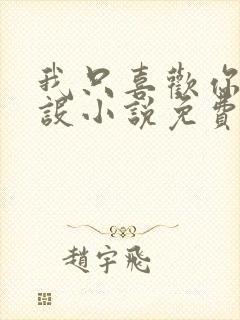 我只喜歡你
設小說免費
趙宇飛